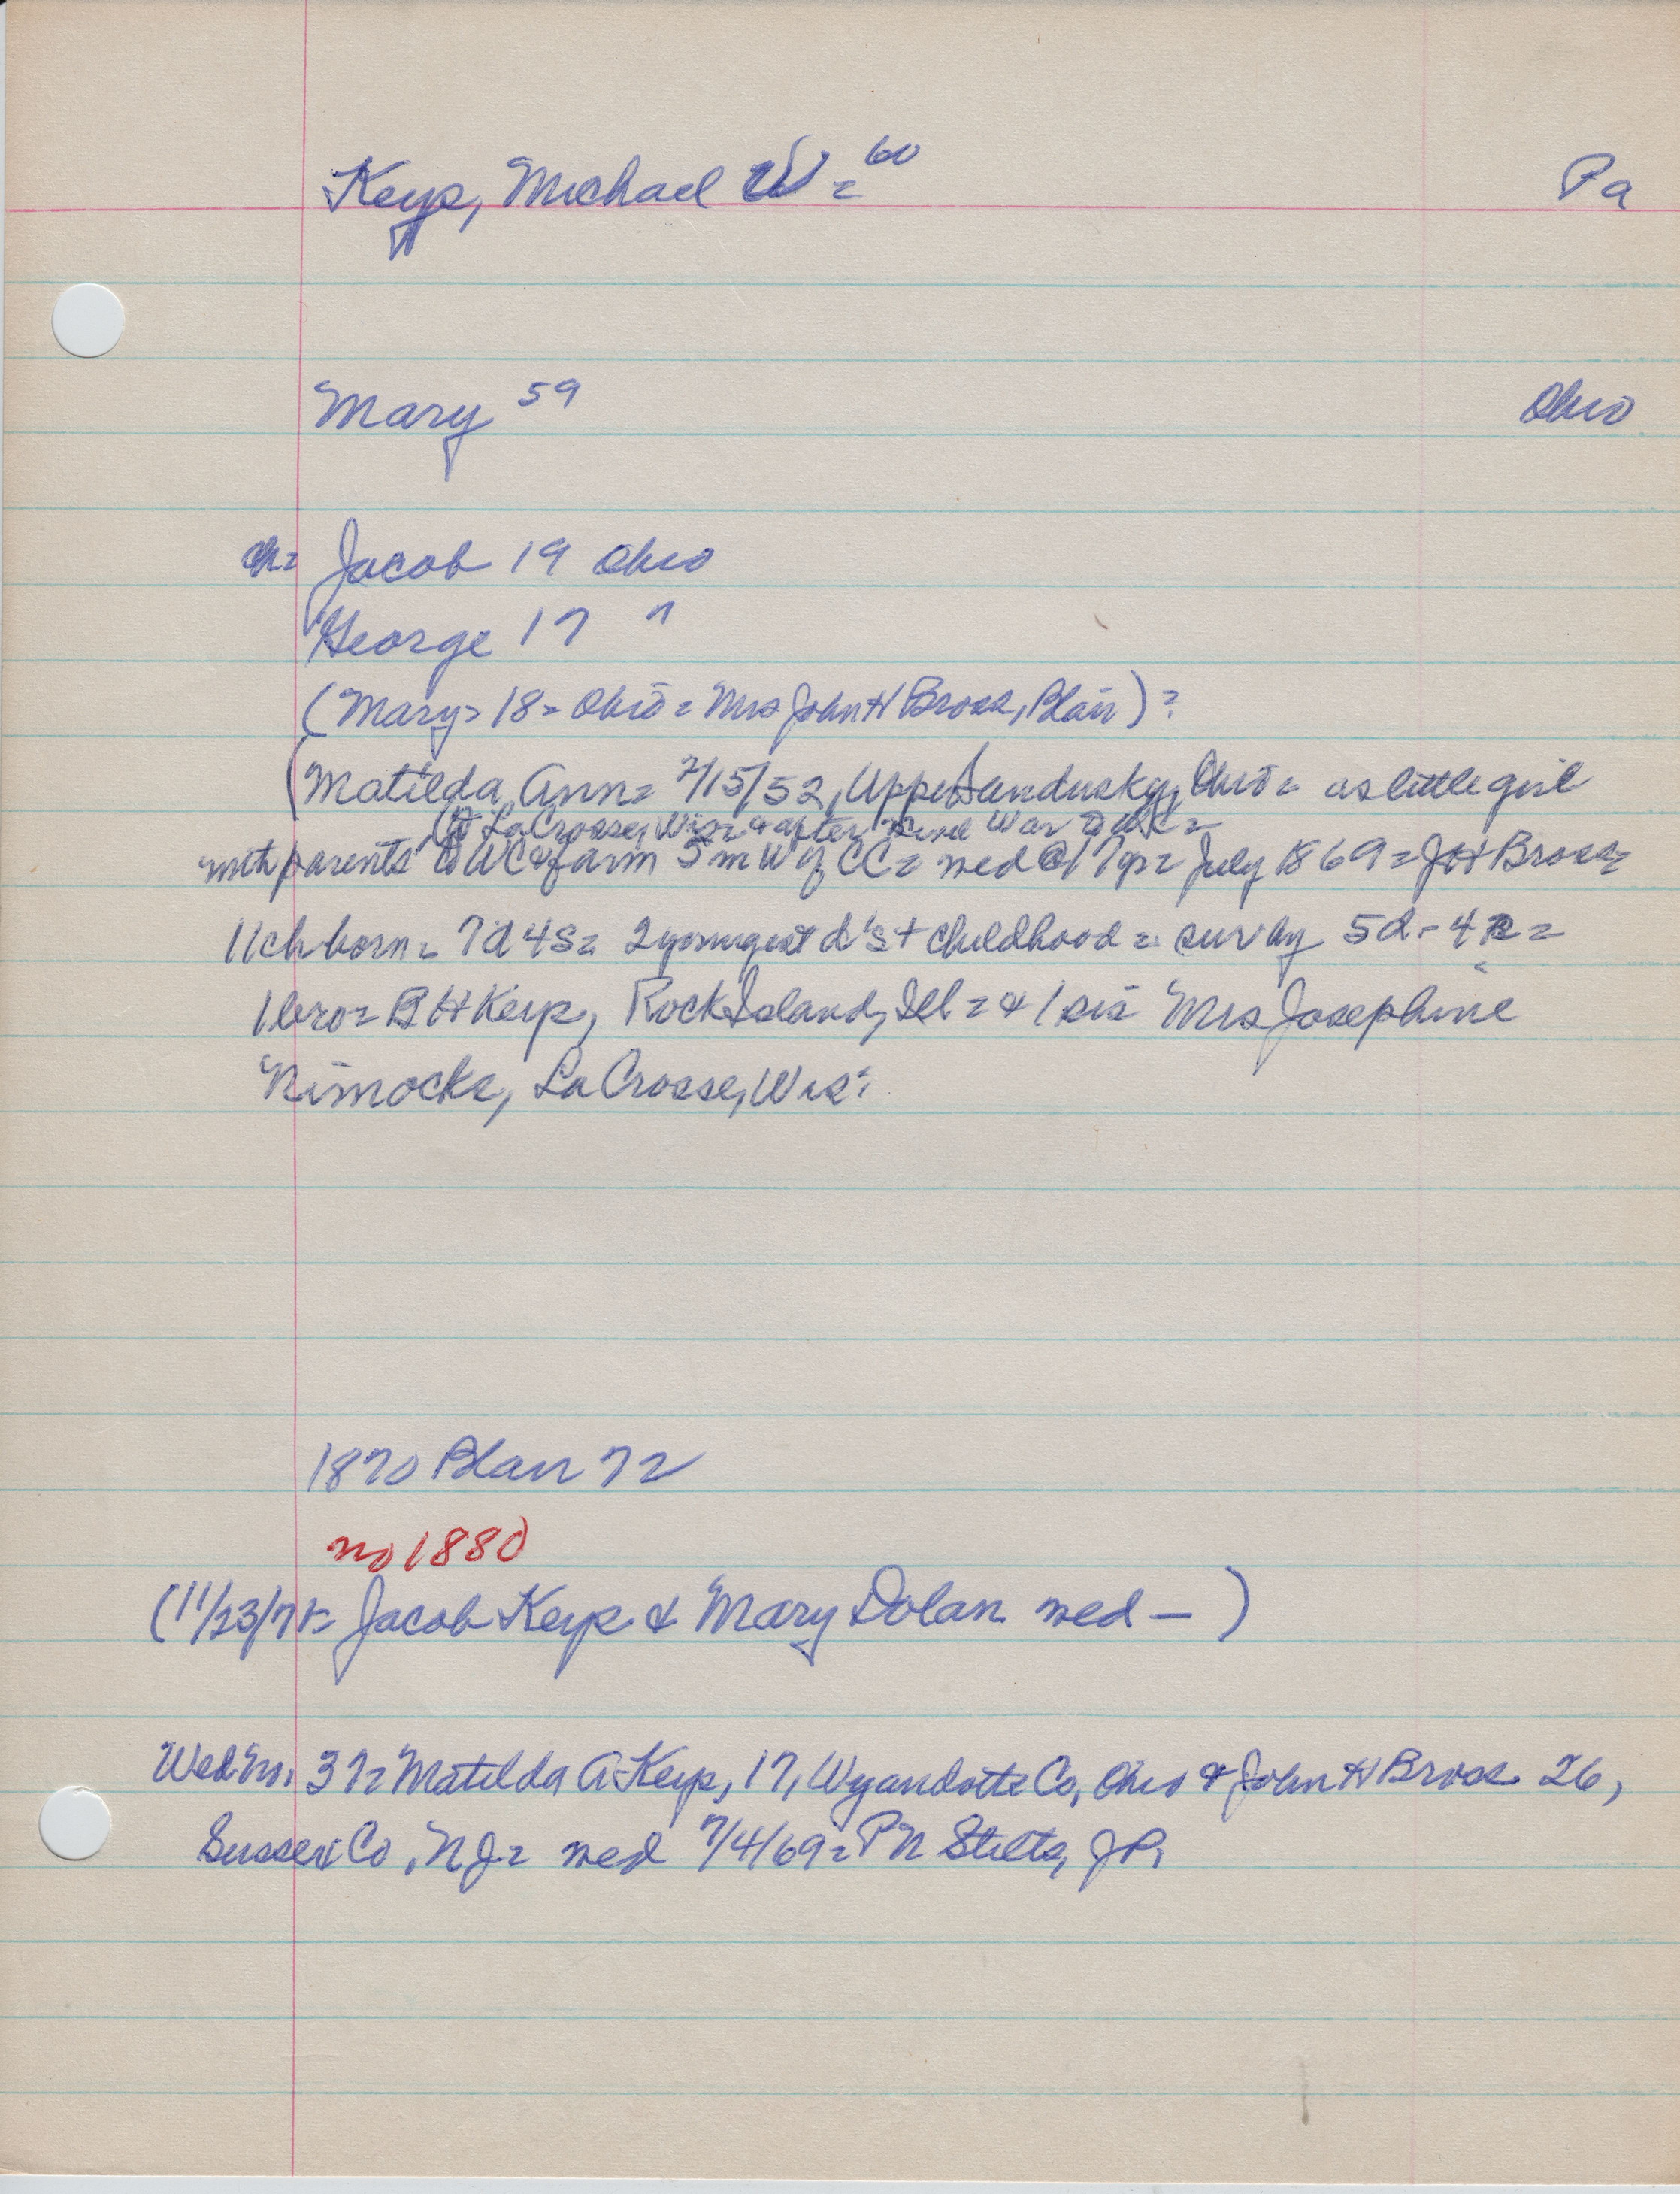 Keys, Michael W = 60 Pa
Mary 59 Ohio
ch= Jacob 19 Ohio
George 17 "
(Mary= 18= Ohio= Mrs John H Bross, Blair)?
(Matilda Ann= 7/15/52, Upper Sandusky, Ohio= as little girl
to LaCrosse, Wis= & after Civil War to WC=
with parents to WC & farm 5 m W of CC= med @ 17 yr= July 1869= JH Bross=
11 ch born= 7d 4s= 2 youngest d's + childhood= surv by 5d - 4s=
1 bro= B H Keys, Rock Island, Ill= & 1 sis Mrs Josephine
Nimocks, LaCrosse, Wis.
1870 Blair 72
no 1880
(11/23/71= Jacob Keys & Mary Dolan med — )
Wed no. 37= Matilda A Keys, 17, Wyandotte Co, Ohio & John H Bross 26,
Sussex Co, NJ= med 7/4/69= P N Stilts, JP.